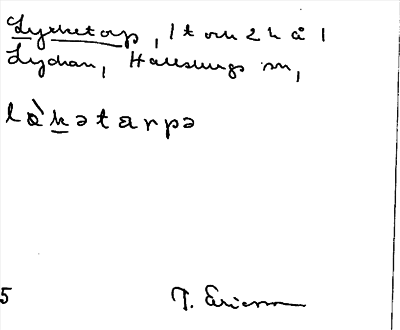 Lyrketorp, 1 t och 2 h å 1
Lyckan, Hallsbergs sn,
lò̀kətarpə
5 T. Ericsson